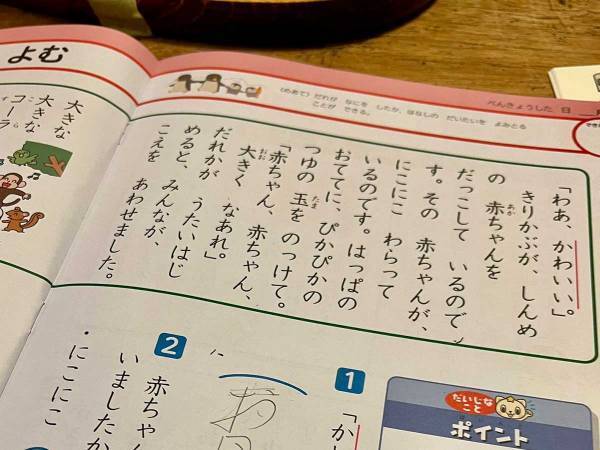 よむ
〈めあて〉だれが なにを したか、はなしの だいたいを よみとる
ことが できる。
べんきょうした 日
「わあ、かわいい。」
きりかぶが、しんめ
の 赤ちゃんを
だっこして いるので
す。その 赤ちゃんが、
にこにこ わらって
いるのです。はっぱの
おててに、ぴかぴかの
つゆの 玉を のっけて。
「赤ちゃん、赤ちゃん、
大きく なあれ。」
だれかが うたいはじ
めると、みんなが、
こえを あわせました。
大きな
大きな
コーラ
だいじな
こと
ポイント
1
「か
2
赤ちゃん
いましたか
・にこにこ